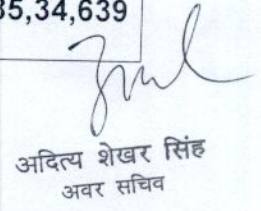 35,34,639
आदित्य शेखर सिंह
अवर सचिव